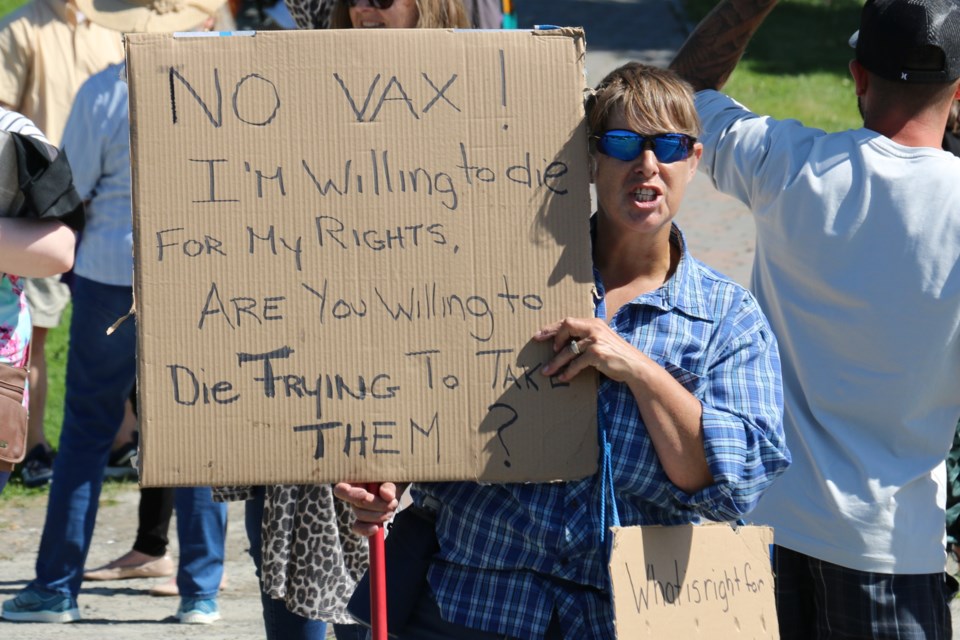 NO VAX !
I'M Willing to die
FOR My RIGHTS.
ARE You Willing to
Die TRYING To TAKE
THEM ?
What is right for